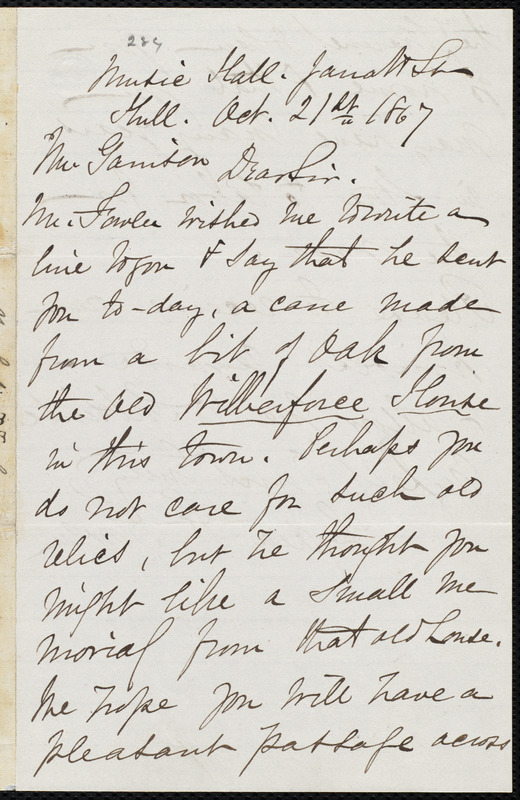 284
Music Hall. Jarratt St
Hull. Oct. 21st 1867
Mr Garrison Dear Sir.
Mr. Fowler wished me to write a
line to you & say that he sent
you to-day, a cane made
from a bit of Oak from
the old Wilberforce House
in this town. Perhaps you
do not care for such old
relics, but he thought you
might like a small me
morial from that old house.
We hope you will have a
pleasant passage across